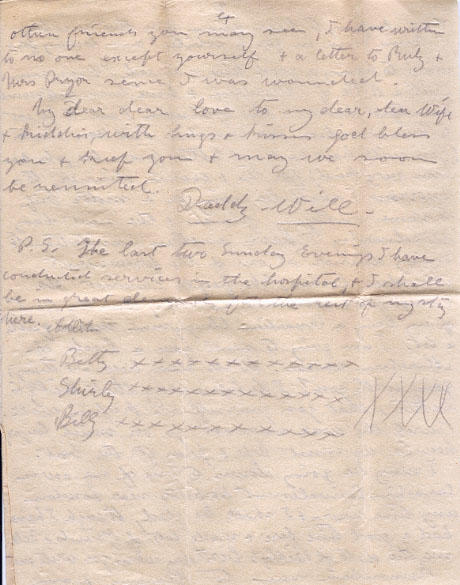 4
other friends you may see, I have written
to no one except yourself & a letter to &
Mrs Pryor since I was wounded.
My dear dear love to my dear, dear Wife
& kiddies, with hugs & kisses god bless
you & keep you & may we soon
be reunited.
Daddy Will.
P.S. The last two Sunday Evenings I have
conducted services in the hospital, & I shall
be in great for the rest of my stay
here.
Betty xxxxxxxxxxxxx
Shirley xxxxxxxxxxxxx
Billy xxxxxxxxxxxx
XXXX